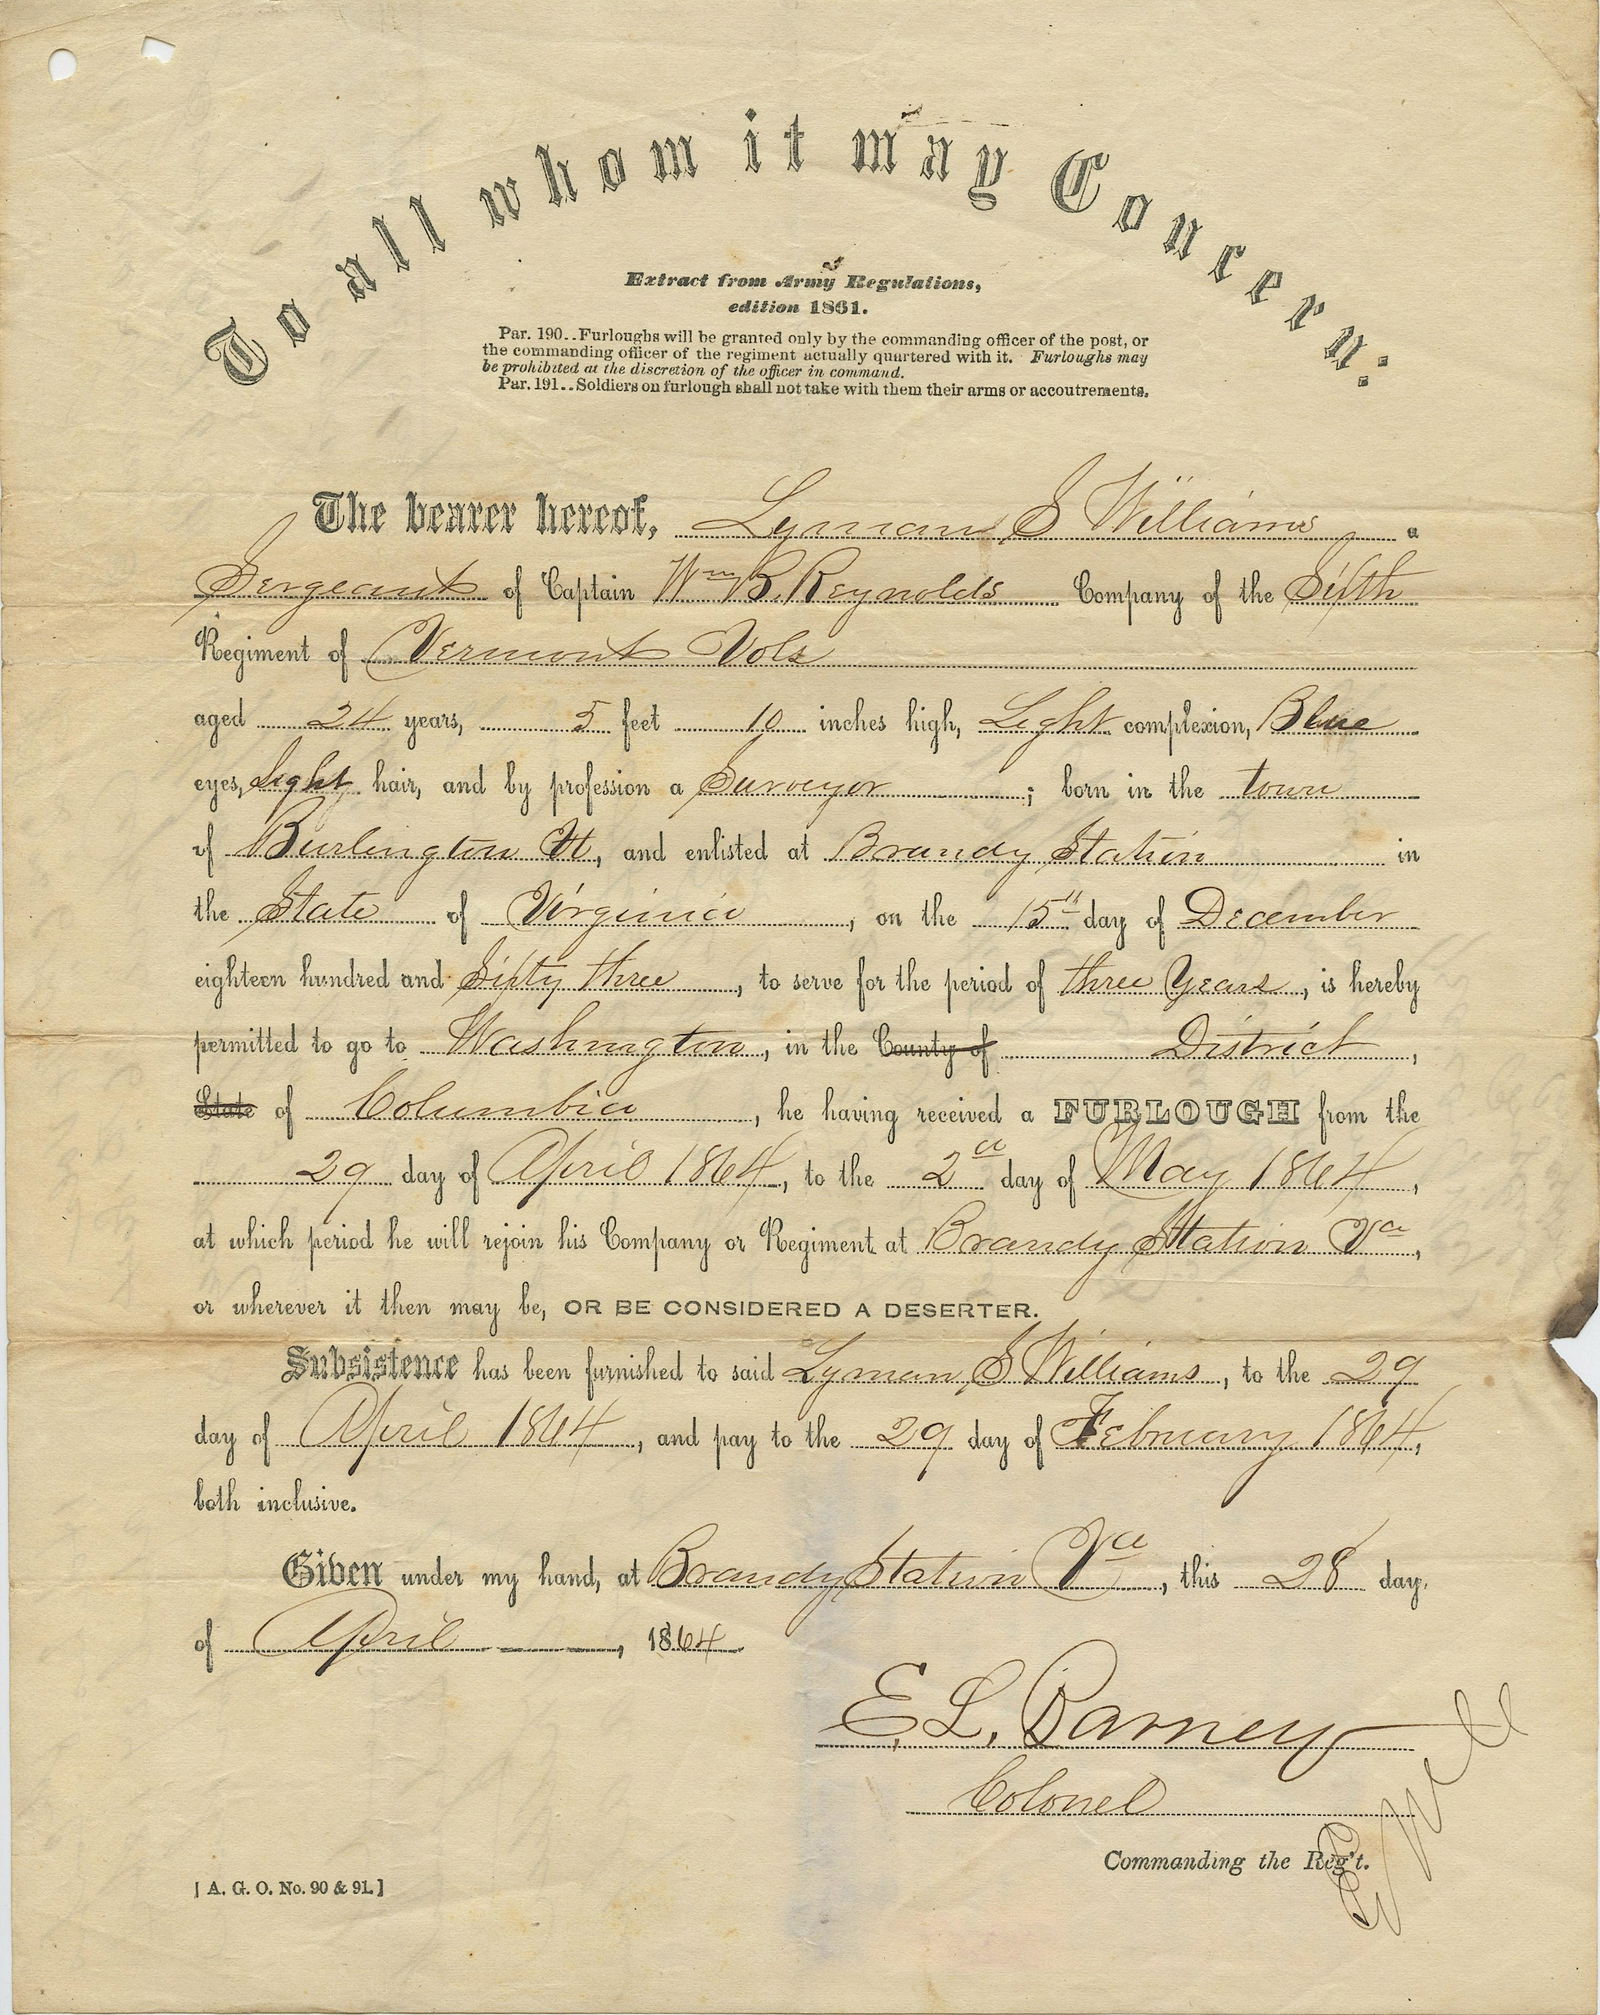 To all whom it may Concern:
Extract from Army Regulations,
edition 1861.
Par. 190..Furloughs will be granted only by the commanding officer of the post, or
the commanding officer of the regiment actually quartered with it. Furloughs may
be prohibited at the discretion of the officer in command.
Par. 191..Soldiers on furlough shall not take with them their arms or accoutrements.
The bearer hereof, Lyman S Williams a
Sergeant of Captain Wm B. Reynolds Company of the Sixth
Regiment of Vermont Vols
aged 24 years, 5 feet 10 inches high, Light complexion, Blue
eyes, light hair, and by profession a Surveyor; born in the town
of Burlington Vt, and enlisted at Brandy Station in
the State of Virginia, on the 15th day of December
eighteen hundred and Sixty three, to serve for the period of three Years, is hereby
permitted to go to Washington, in the County of District,
State of Columbia, he having received a FURLOUGH from the
29 day of April 1864, to the 2d day of May 1864,
at which period he will rejoin his Company or Regiment at Brandy Station Va,
or wherever it then may be, OR BE CONSIDERED A DESERTER.
Subsistence has been furnished to said Lyman S Williams, to the 29
day of April 1864, and pay to the 29 day of February 1864,
both inclusive.
Given under my hand, at Brandy Station Va, this 28 day
of April, 1864
E. L. Barney
Colonel
Commanding the Reg't.
[A. G. O. No. 90 & 91.]